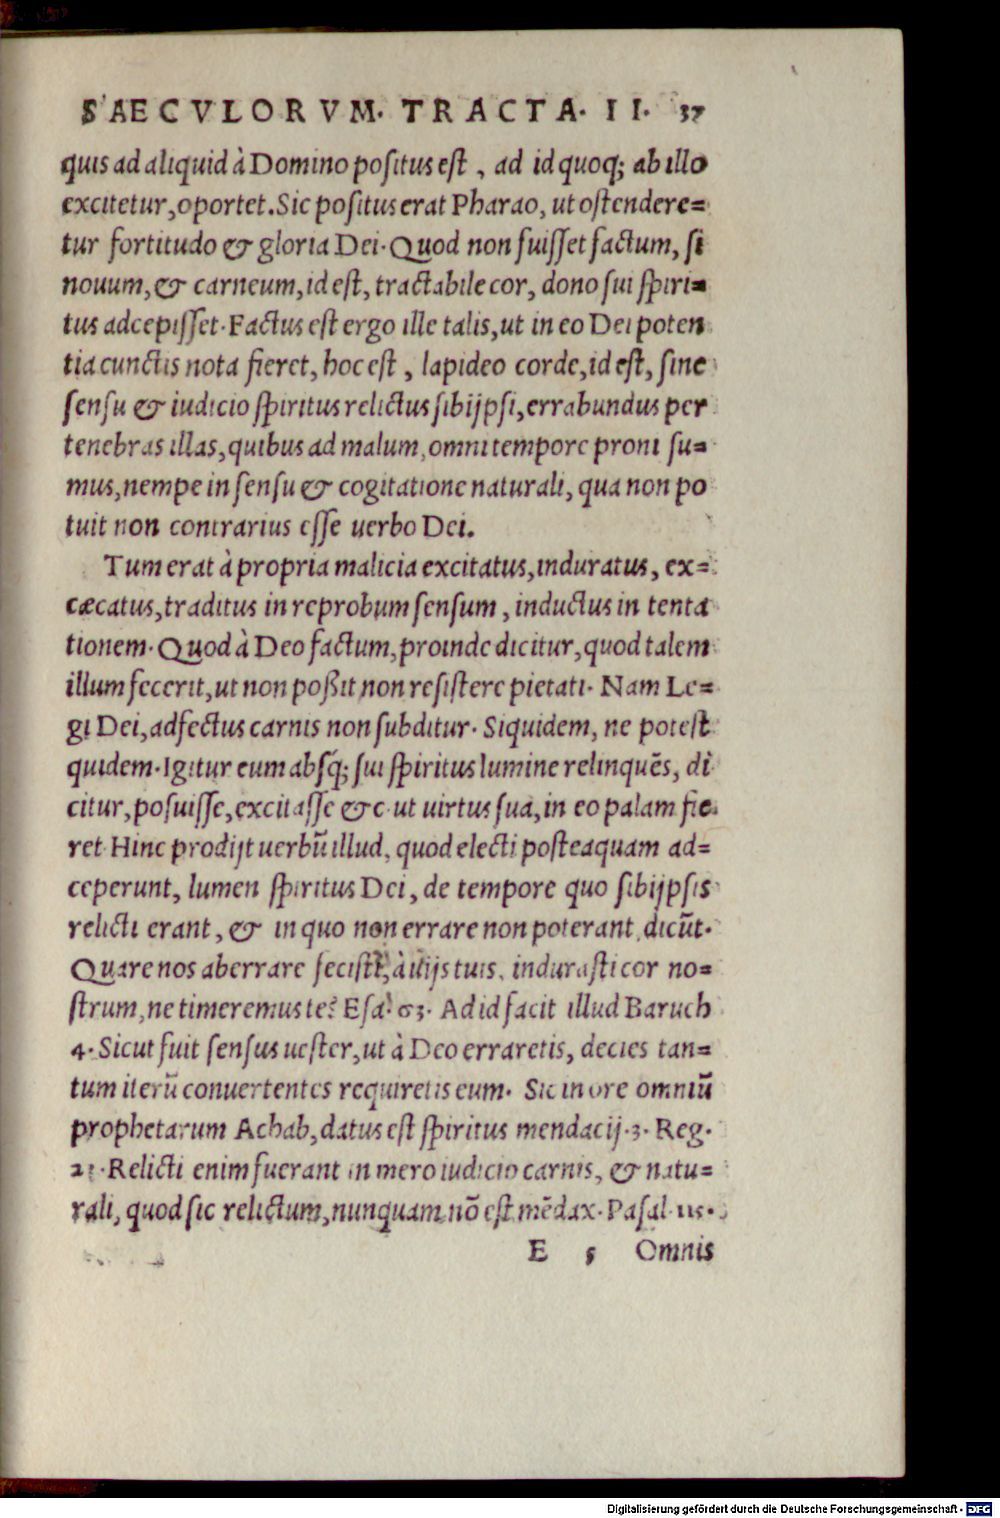 SAECVLORVM. TRACTA. II. 37
quis ad aliquid à Domino positus est, ad id quoq; ab illo
excitetur, oportet. Sic positus erat Pharao, ut ostendere=
tur fortitudo & gloria Dei. Quod non fuisset factum, si
nouum, & carneum, id est, tractabile cor, dono sui spiri=
tus adcepisset. Factus est ergo ille talis, ut in eo Dei poten
tia cunctis nota fieret, hoc est, lapideo corde, id est, sine
sensu & iudicio spiritus relictus sibijpsi, errabundus per
tenebras illas, quibus ad malum, omni tempore proni su=
mus, nempe in sensu & cogitatione naturali, qua non po
tuit non contrarius esse uerbo Dei.
Tum erat à propria malicia excitatus, induratus, ex=
cæcatus, traditus in reprobum sensum, inductus in tenta
tionem. Quod à Deo factum, proinde dicitur, quod talem
illum fecerit, ut non poßit non resistere pietati. Nam Le=
gi Dei, adfectus carnis non subditur. Siquidem, ne potest
quidem. Igitur eum absq; sui spiritus lumine relinquēs, di
citur, posuisse, excitasse &c. ut uirtus sua, in eo palam fie
ret. Hinc prodijt uerbū illud, quod electi posteaquam ad=
ceperunt, lumen spiritus Dei, de tempore quo sibijpsis
relicti erant, & in quo non errare non poterant, dicūt.
Quare nos aberrare fecisti, à uijs tuis, indurasti cor no=
strum, ne timeremus te? Esa. 63. Ad id facit illud Baruch
4. Sicut fuit sensus uester, ut à Deo erraretis, decies tan=
tum iterū conuertentes requiretis eum. Sic in ore omniū
prophetarum Achab, datus est spiritus mendacij. 3. Reg.
Relicti enim fuerant in mero iudicio carnis, & natu=
rali, quod sic relictum, nunquam nō est mēdax. Psal. 115.
E 5 Omnis
Digitalisierung gefördert durch die Deutsche Forschungsgemeinschaft - DFG